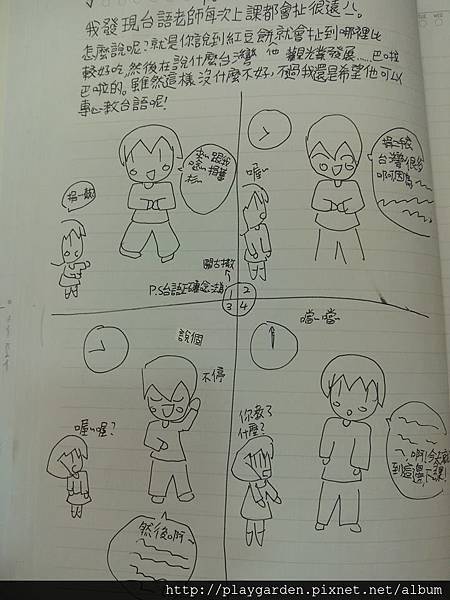 我發現台語老師每次上課都會扯很遠ㄟ。
怎麼說呢?就是你說到紅豆餅就會扯到哪裡比
較好吃,然後在說什麼台灣他觀光業發展……巴啦
巴啦的。雖然這樣沒什麼不好,不過我還是希望他可以
專心教台語呢!
喔~
台灣很
啊因為
P.S台語正確念法
1 2
3 4
說個
不停
喔~喔?
然後啊
噹~噹~
你教了
什麼?
啊!今天就
到這邊下課!
http://playgarden.pixnet.net/album